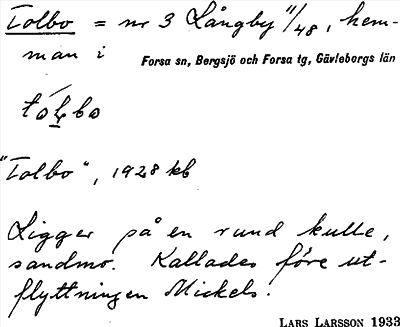 Tolbo = nr 3 Långby 11/48, hem-
man i Forsa sn, Bergsjö och Forsa tg, Gävleborgs län
tólbo
"Tolbo", 1928 kb
Ligger på en rund kulle,
sandmo. Kallades före ut-
flyttningen Mickels.
LARS LARSSON 1933